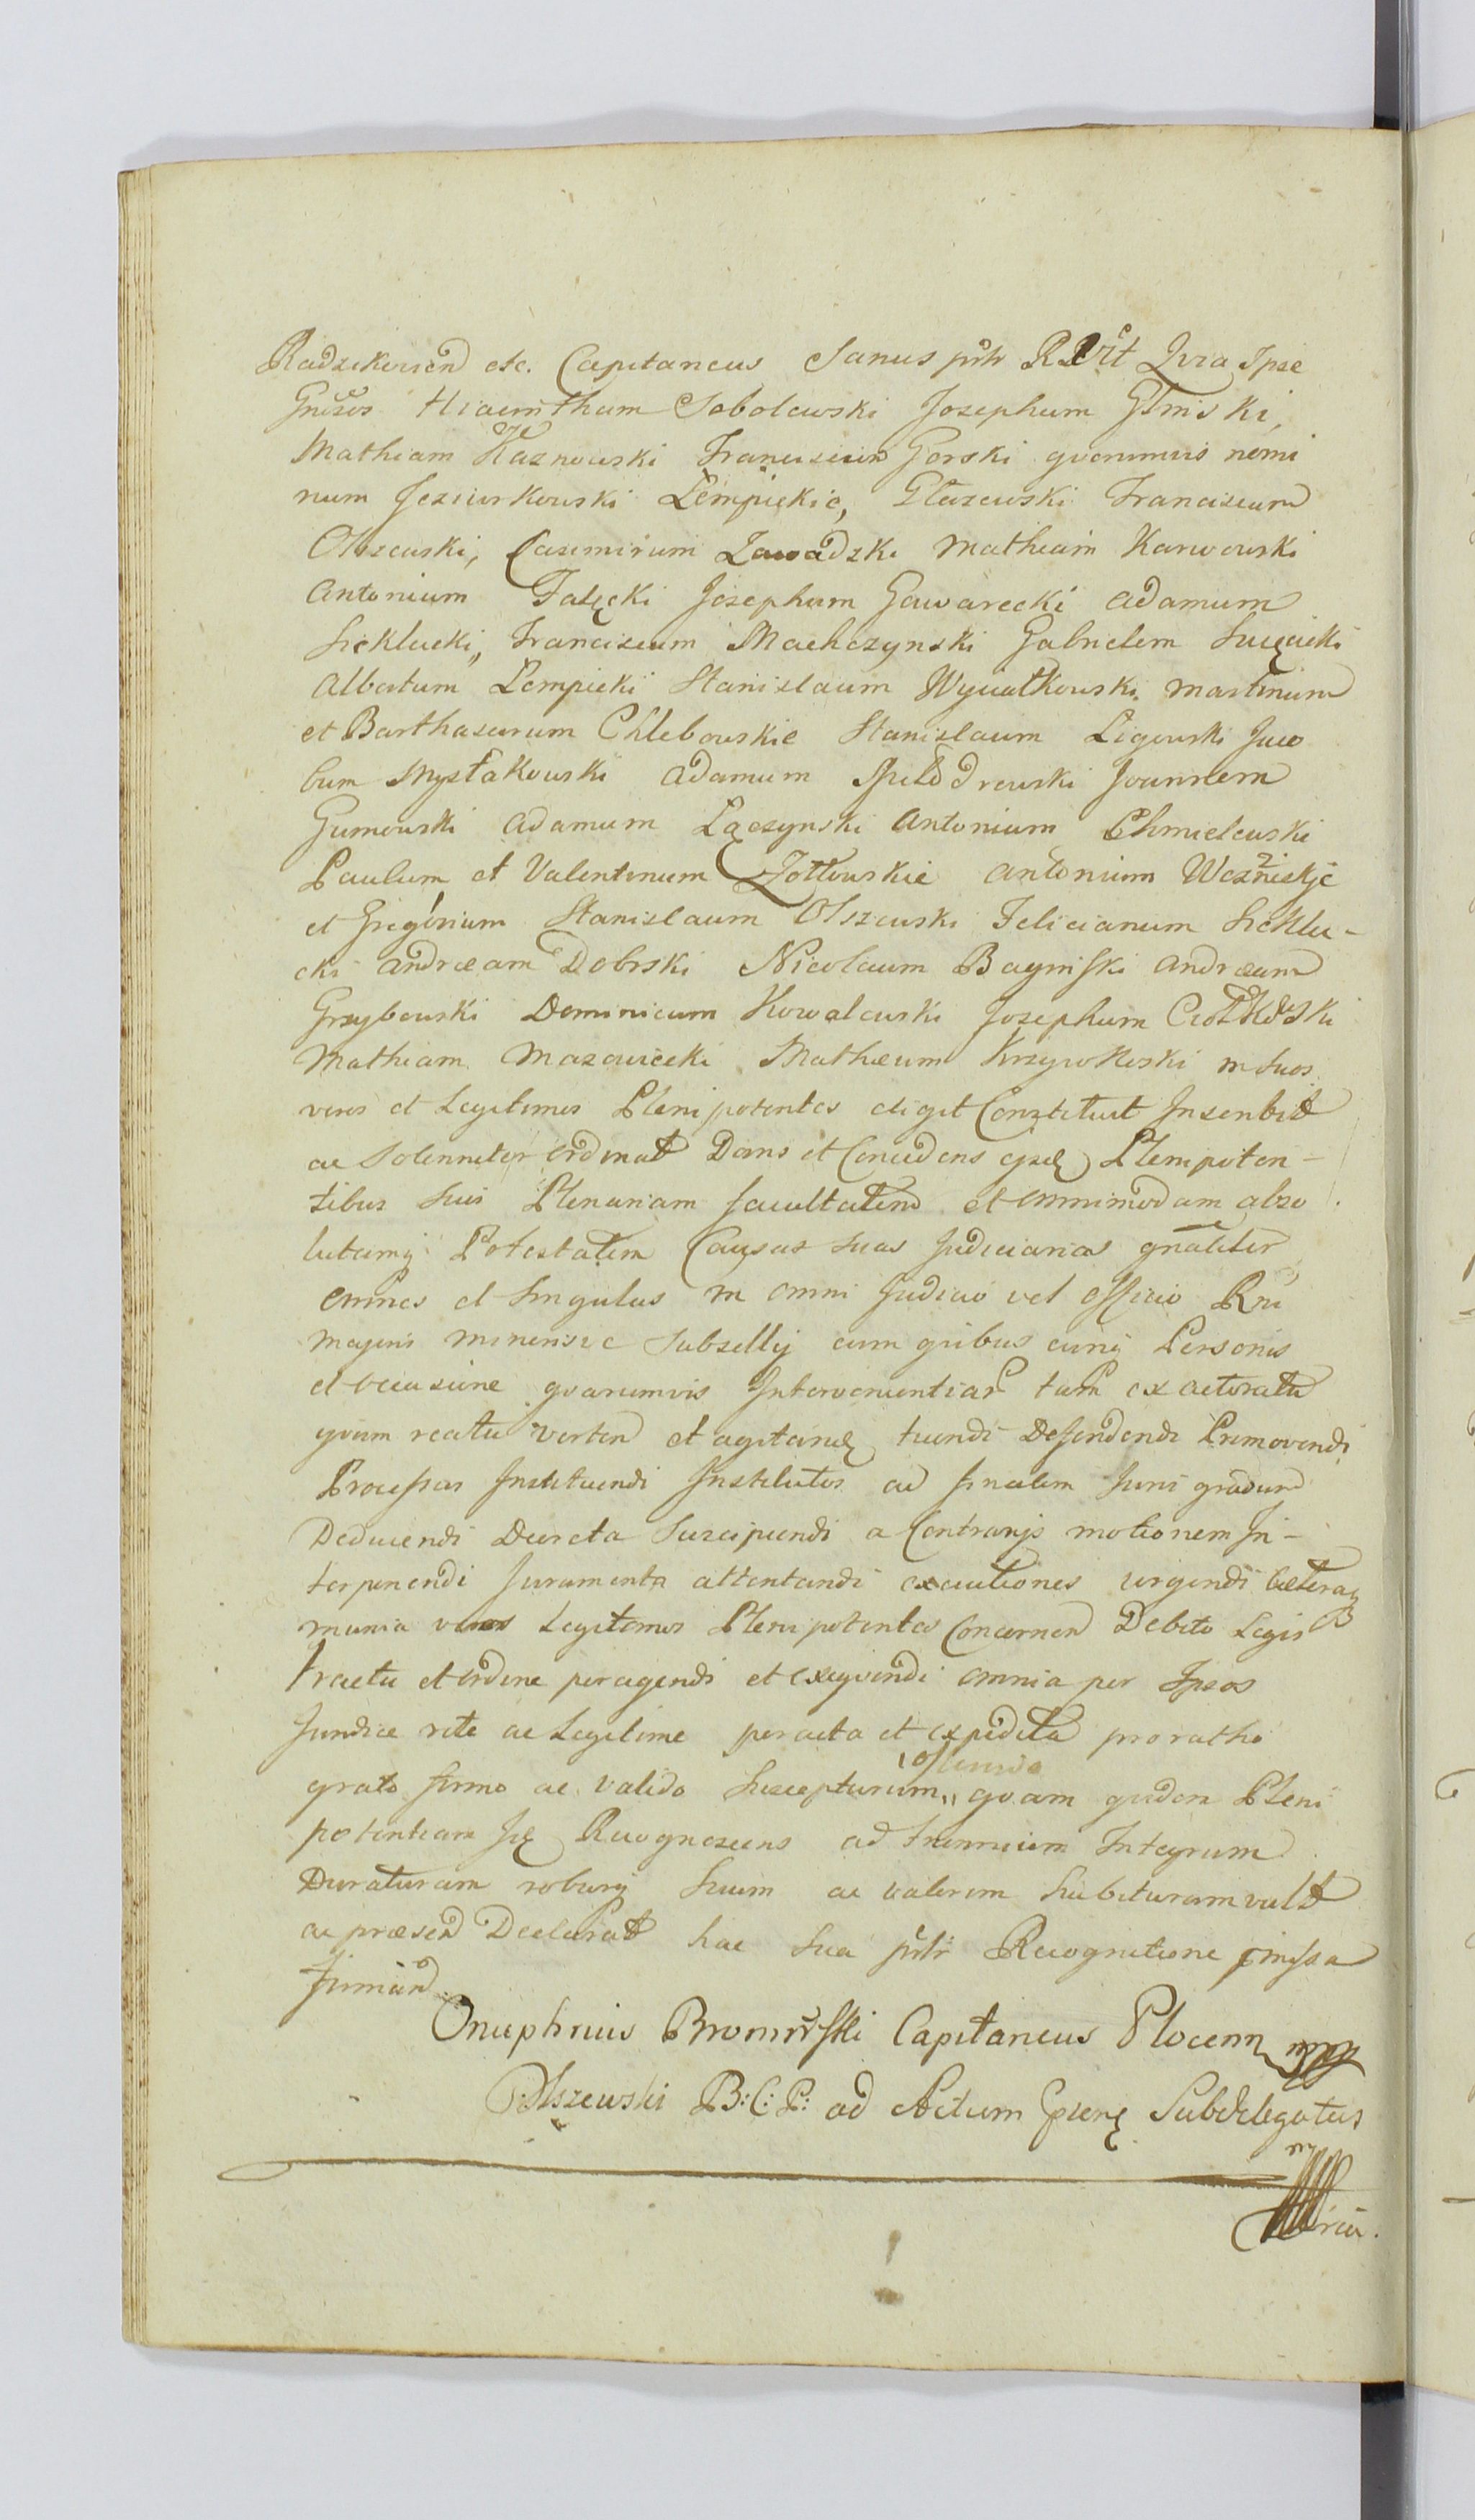 Radzikovien etc. Capitaneus Sanus pntr RRvit Qvia Ipse
Gnosos Hiacinthum Sobolewski Josephum Glinski,
Mathiam Kaznowski Franciscum Gorski qvorumvis nomi
num Jeziurkowski Lempickie, Głazewski Franciscum
Olszewski, Casimirum Zawadzki Mathiam Karwowski
Antonium Fałęcki Josephum Gawarecki Adamum
Siklucki, Franciscum Machczynski Gabrielem Swięcicki
Albertum Lempicki Stanislaum Wyviatkowski Martinum
et Barthasarum Chlebowskie Stanislaum Ligowski Jaco
bum Mysłakowski Adamum Joannem
Gumowski Adamum Łączynski Antonium Chmielewski
Paulum et Valentinum Zołtowskie Antonium Wozniskje
et Gregorium Stanislaum Olszewski Felicianum Siklu-
cki Andræam Dobrski Nicolaum Baginski Andræam
Grzybowski Dominicum Kowalewski Josephum Ciołkowski
Mathiam Mazowiecki Mathæum Krzywokoski in Suos
veros et Legitimos Plenipotentes eligit Constituit Inscribit
ac Solenniter ordinat Dans et Concedens ejsdę Plenipoten-
tibus Suis Plenariam facultatem et omnimodam abso
lutamq Potestatem Causas suas Judiciarias gnaliter
omnes et Singulas in omni Judicio vel officio Rni
majoris minorisve Subsellij cum qvibus cunq Personis
et occasione qvarumvis Intervenientiar tam ex actoratu
qvam reatu verten et agitandę tuendi Defendendi Promovendi
Processus Instituendi Institutos ad finalem Juris gradum
Deducendi Decreta Suscipiendi a Contrarijs motionem In-
terponendi Juramenta attentandi executiones urgendi Cæteraq
munia veros Legitimos Plenipotentes Concernen Debito Legis
tractu et ordine peragendi et exeqvendi omnia per Ipsos
Juridice rite ac Legitime peracta et expedita pro ratho
grato firmo ac valido Suscepturum qvam qvidem Pleni
potentiam Recognoscens ad triennium Integrum
Duraturam roburq Suum ac valorem Subituram vult
ac præsen Declarat hac Sua pntr Recognitione pmissa
firman
Onuphrius Bromirski Capitaneus Plocenn mpp
Olszewski B: C: P: ad Actum pserę Subdelegatus
mp